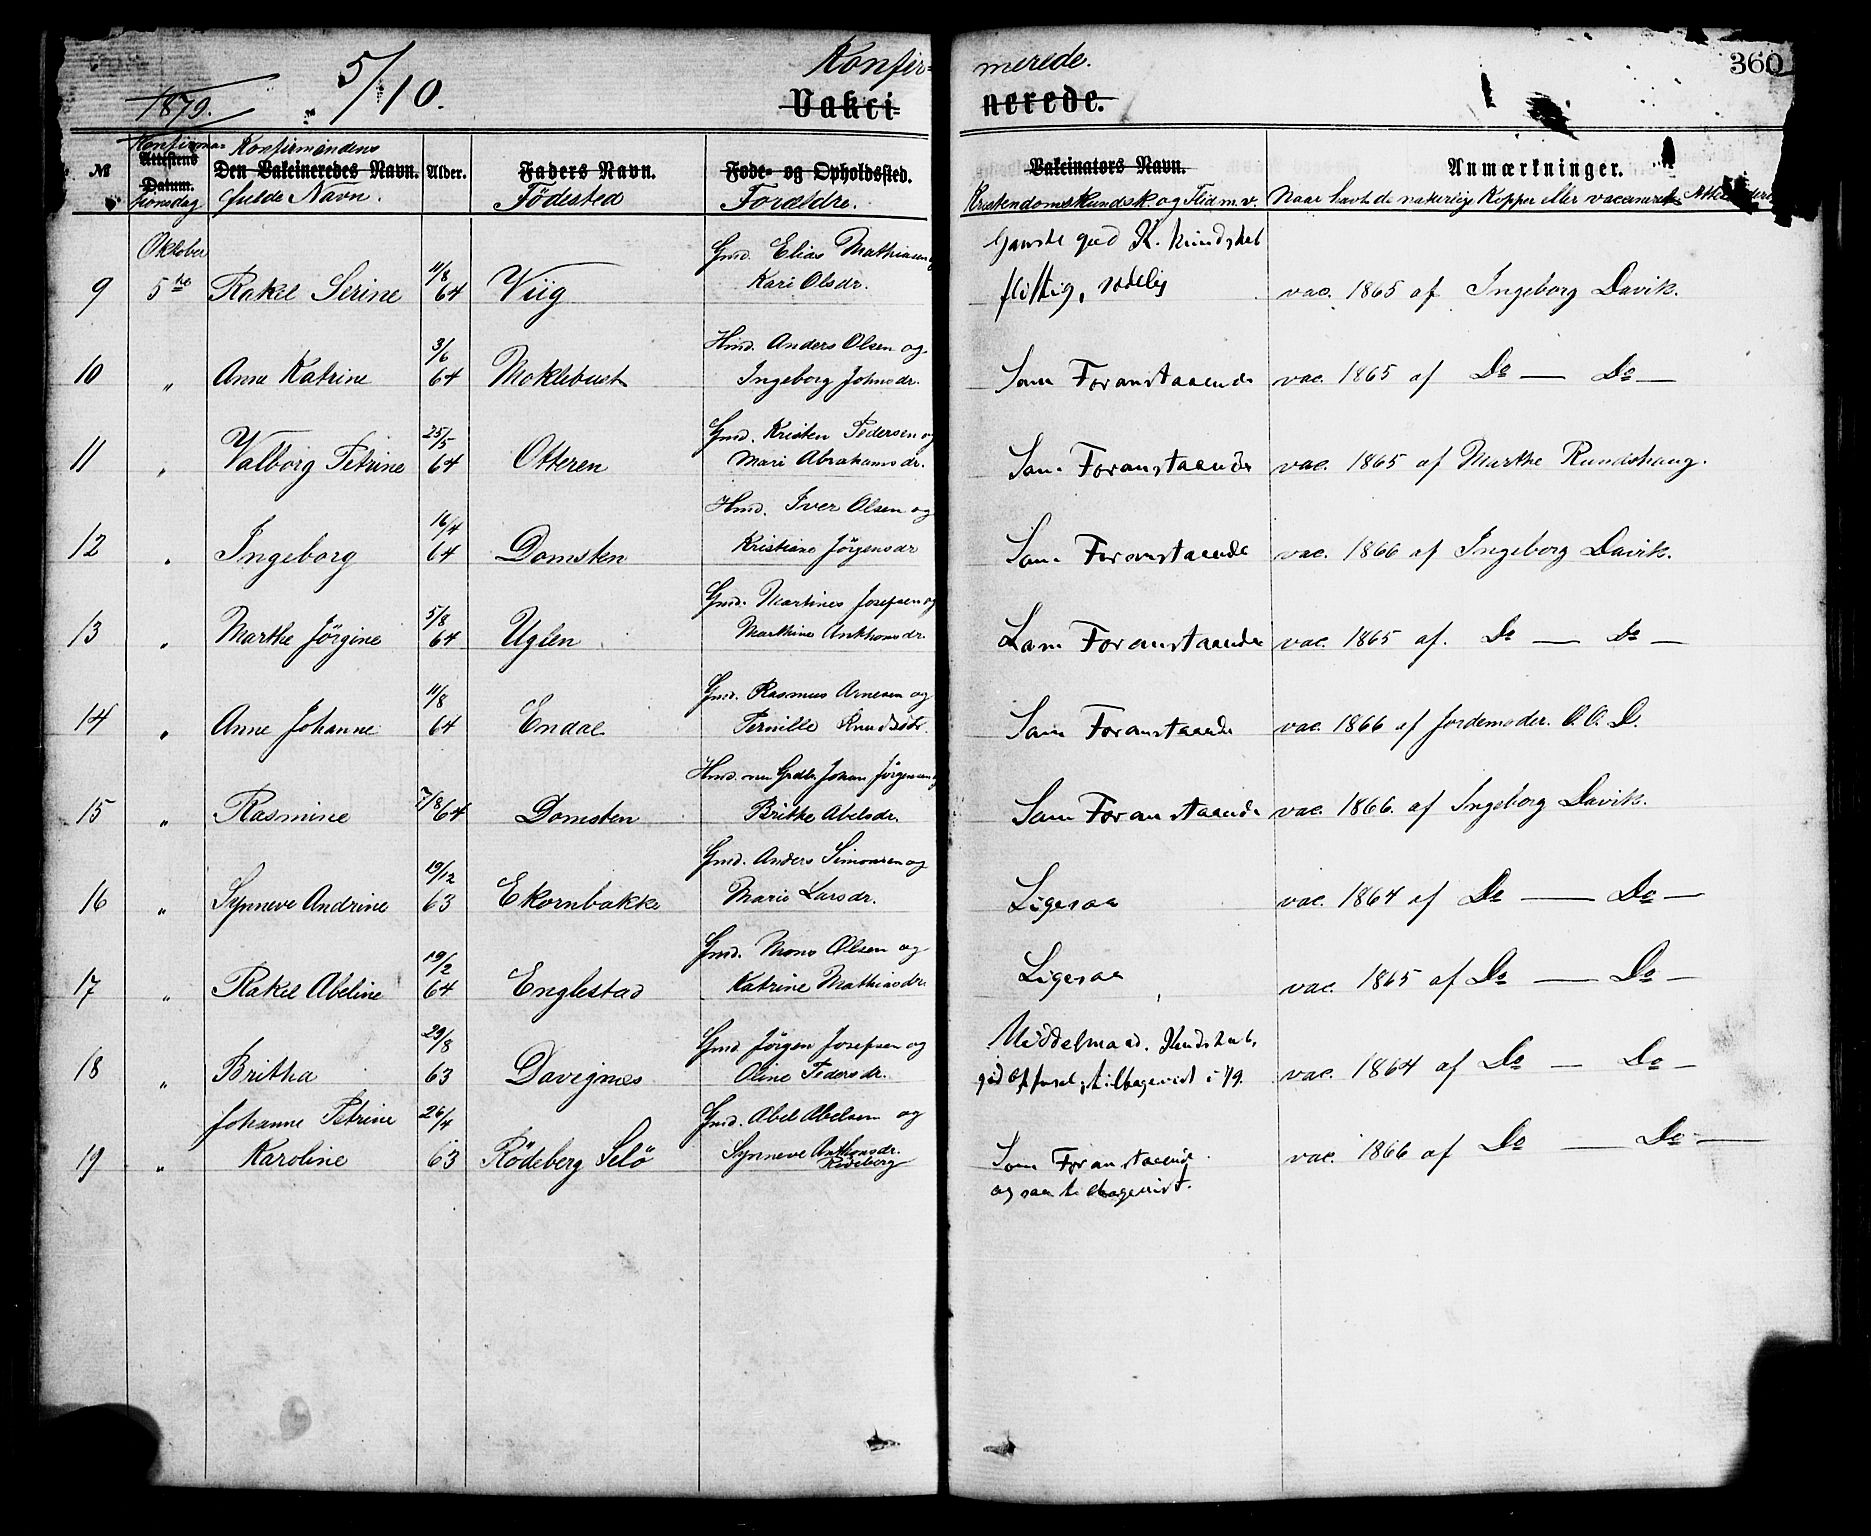 1879. 5/10. Konfir= merede. 360
Vakci- nerede.
№ Konfirma= Attestens Datum. tionsdag Konfirmandens Den Vakcineredes Navn. fulde Navn. Alder. Faders Navn. Födested Føde- og Opholdssted. Forældre. Vakcinators Navn. Kristendomskundsk. og Flid m. v. Anmærkninger. Naar havt de naturlige Kopper eller vaccineret
Oktober 11/8 Gmd. Elias Mathiasen og Ganske god K. kundskab
9 5te Rakel Serine 64 Viig Kari Olsdr. flittig, sædelig vac. 1865 af Ingeborg Davik.
3/6 Hmd. Anders Olsen og
10 " Anne Katrine 64 Moklebust Ingeborg Johnsdr. Som Foranstaaende vac. 1865 af Do — Do —
25/5 Gmd. Kristen Pedersen og
11 " Valborg Petrine 64 Otteren Mari Abrahamsdr. Som Foranstaaende vac. 1865 af Marthe Rundshaug.
16/4 Hmd. Iver Olsen og
12 " Ingeborg 64 Domsten Kristiane Jörgensdr Som Foranstaaende vac. 1866 af Ingeborg Davik.
5/8 Gmd. Martines Josefsen og
13 " Marthe Jörgine 64 Uglen Marthine Anthonsdr. Som Foranstaaende vac. 1865 af. Do — Do —
11/8 Gmd. Rasmus Arnesen og
14 " Anne Johanne 64 Endal Pernille Knudsdr. Som Foranstaaende vac. 1866 af Jordemoder. O. O. D.
Hmd. nu Grdbr. Johan Jörgensen og
15 " Rasmine 7/8 64 Domsten Brithe Abelsdr. Som Foranstaaende vac. 1866. af Ingeborg Davik.
19/12 Gmd. Anders Simonsen og
16 " Synneve Andrine 63 Ekornbakke Marie Larsdr. Ligesaa vac. 1864 af Do — Do —
19/2 Gmd. Mons Olsen og
17 " Rakel Abeline 64 Englestad Katrine Mathiasdr. Ligesaa vac. 1865 af Do — Do —
29/8 Gmd. Jörgen Josefsen og Middelmaad. Kundskab,
18 " Britha 63 Davignes Oline Pedersdr. god Opførsel, tilbagevist i 79. vac. 1864 af Do — Do —
Johanne Petrine 26/4 Gmd. Abel Abelsen og
19 " Karoline 63 Rödeberg Selö Synneve Anthonsdr. Rødeberg Som Foranstaaende vac. 1866 af Do — Do —
og saa tilbagevist.